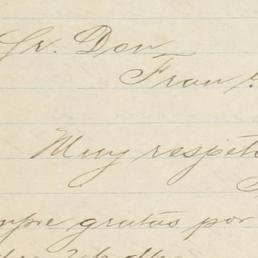 Sr. Don
Fran
Muy respet
mpre gratas por